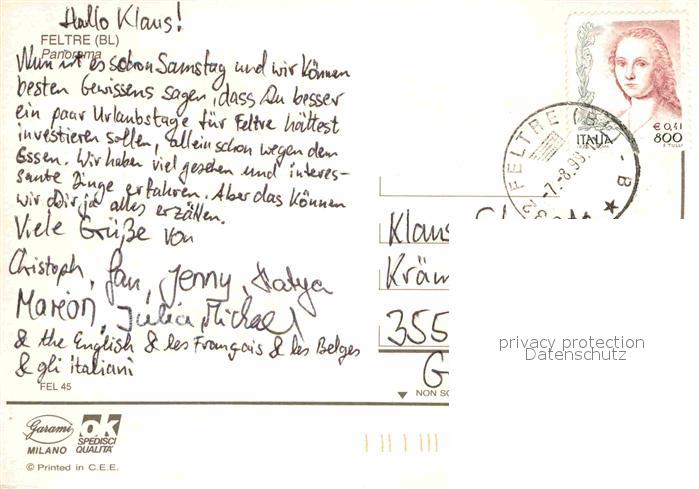 Hallo Klaus!
FELTRE (BL)
Panorama
Nun ist es schon Samstag und wir können
besten Gewissens sagen, dass Du besser
ein paar Urlaubstage für Feltre hättest
investieren sollen, allein schon wegen dem
Essen. Wir haben viel gesehen und interes-
sante Dinge erfahren. Aber das können
wir Dir ja alles erzählen.
Viele Grüße von
Christoph, Jan, Jenny, Katya
Marion, Julia, Michael
& the English & les Français & les Belges
& gli italiani
FEL 45
Garami
MILANO
ok
SPEDISCI
QUALITA'
© Printed in C.E.E.
ITALIA
€ 0,41
800
FELTRE (BL)
7.8.99
B
Klaus
Kräm
355
G
NON SC
privacy protection
Datenschutz